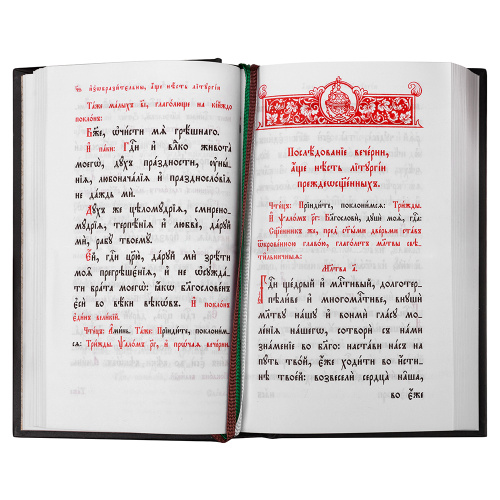 и҆з̾ѡбрази́тєльны, а҆́ще нѣ́сть лїтꙋргі́и
Та́же ма́лыхъ в҃і, глаго́люще на кі́йждо
покло́нъ:
Бж҃е, ѡ҆чи́сти мѧ̀ грѣ́шнаго.
И҆ па́ки: Гдⷭ҇и и҆ вл҃ко живота̀
моегѡ̀, дꙋ́хъ пра́здности, ᲂу҆ны́-
нїѧ, любонача́лїѧ и҆ праздносло́вїѧ
не да́ждь мѝ.
Дꙋ́хъ же цѣломꙋ́дрїѧ, смиренно-
мꙋ́дрїѧ, терпѣ́нїѧ и҆ любвѐ, да́рꙋй
мѝ, рабꙋ̀ твоемꙋ̀.
Е҆́й, гдⷭ҇и цр҃ю̀, да́рꙋй мѝ зрѣ́ти
моѧ̑ прегрѣшє́нїѧ, и҆ не ѡ҆сꙋжда́-
ти бра́та моегѡ̀: ꙗ҆́кѡ бл҃гослове́нъ
є҆сѝ во вѣ́ки вѣкѡ́въ. И҆ покло́нъ
є҆ди́нъ вели́кїй.
Чте́цъ: А҆ми́нь. Та́же: Прїиди́те, поклони́м-
сѧ: Три́жды. Ѱало́мъ р҃г, и҆ прѡ́чаѧ вече́рни.
Послѣ́дованїе вече́рни,
а҆́ще нѣ́сть лїтꙋргі́и
преждеѡсщ҃е́нныхъ.
Чте́цъ: Прїиди́те, поклони́мсѧ: Три́жды.
И҆ ѱало́мъ р҃г: Благословѝ, дꙋшѐ моѧ̀, гдⷭ҇а:
Сщ҃е́нникъ же, пред̾ ст҃ы́ми две́рьми ста́въ
ѿкрове́нною главо́ю, глаго́летъ мл҃твы свѣ-
ти́льничныѧ:
Мл҃тва а҃.
Гдⷭ҇и ще́дрый и҆ млⷭ҇тивый, долготер-
пѣли́ве и҆ многомлⷭ҇тиве, внꙋшѝ
мл҃твꙋ на́шꙋ и҆ вонмѝ гла́сꙋ мо-
ле́нїѧ на́шегѡ, сотворѝ съ на́ми
зна́менїе во бл҃го: наста́ви на́съ на
пꙋ́ть тво́й, є҆́же ходи́ти во и҆́сти-
нѣ твое́й: возвеселѝ сердца̀ на̑ша,
во є҆́же